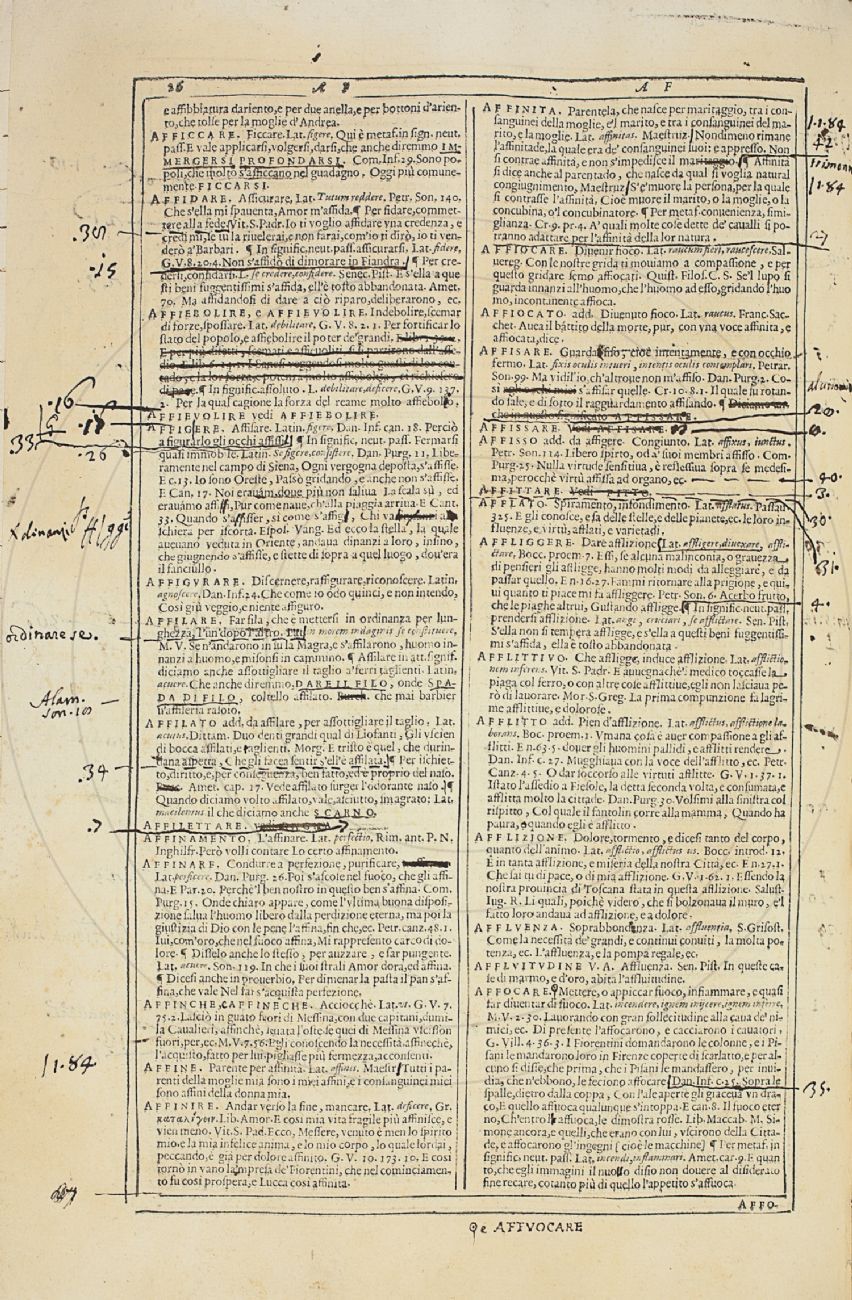 26 A F
e affibbiatura dariento, e per due anella, e per bottoni d'arien-
to, che tolse per la moglie d'Andrea.
AFFICCARE. Ficcare. Lat. figere, Qui è metaf. in sign. neut.
pass. E vale applicarsi, volgersi, darsi, che anche diremmo IM-
MERGERSI PROFONDARSI. Com. Inf. 29. Sono po-
poli, che molto s'afficcano nel guadagno, Oggi più comune-
mente FICCARSI.
AFFIDARE. Assicurare, Lat. Tutum reddere. Petr. Son. 140.
Che s'ella mi spauenta, Amor m'affida. ¶ Per fidare, commet-
tere alla fede, Vit. S. Padr. Io ti voglio affidare vna credenza, e
credimi, se tu la riuelerai, e non farai, com'io ti dirò, io ti ven-
derò a' Barbari. ¶ In signific. neut. pass. assicurarsi, Lat. fidere,
G. V. 8. 20. 4. Non s'affidò di dimorare in Fiandra. ¶ Per cre-
derti, confidarti. L. se credere, confidere. Senec. Pist. E s'ella a que
sti beni fuggentissimi s'affida, ell'è tosto abbandonata. Amet.
70. Ma affidandosi di dare a ciò riparo, deliberarono, ec.
AFFIEBOLIRE, E AFFIEVOLIRE. Indebolire, scemar
di forze, spossare. Lat. debilitare, G. V. 8. 2. 1. Per fortificar lo
stato del popolo, e affiebolire il poter de' grandi.
di pace. ¶ In signific. assoluto. L. debilitare, deficere. G. V. 9. 137.
2. Per la qual cagione la forza del reame molto affiebolìo,
AFFIEVOLIRE vedi AFFIEBOLIRE.
AFFIGERE. Affissare. Latin. figere, Dan. Inf. can. 18. Perciò
a figurarlo gli occhi affissi. ¶ In signific. neut. pass. Fermarsi
quasi immobile. Latin. Se figere, consistere. Dan. Purg. 11. Libe-
ramente nel campo di Siena, Ogni vergogna deposta, s'affisse.
E c. 13. Io sono Oreste, Passò gridando, e anche non s'affisse.
E Can. 17. Noi erauam, doue più non saliua La scala sù, ed
erauamo affissi, Pur come naue, ch'alla piaggia arriua. E Cant.
33. Quando s'affisser, si come s'affigge, Chi va
schiera per iscorta. Espos. Vang. Ed ecco la stella, la quale
aueuano veduta in Oriente, andaua dinanzi a loro, insino,
che giugnendo s'affisse, e stette di sopra a quel luogo, dou'era
il fanciullo.
AFFIGVRARE. Discernere, raffigurare, riconoscere. Latin.
agnoscere, Dan. Inf. 24. Che come io odo quinci, e non intendo,
Così giù veggio, e niente affiguro.
AFFILARE. Far fila, che è mettersi in ordinanza per lun-
ghezza, l'un dopo l'altro. in morem indaginis se constituere,
M. V. Se n'andarono in su la Magra, e s'affilarono, huomo in-
nanzi a huomo, e misonsi in cammino. ¶ Affilare in att. signif.
diciamo anche assottigliare il taglio a' ferri taglienti. Latin,
acuere. Che anche diremmo, DARE IL FILO, onde SPA-
DA DI FILO, coltello affilato. che mai barbier
s'affileria rasoio.
AFFILATO add. da affilare, per assottigliare il taglio. Lat.
acutus. Dittam. Duo denti grandi qual di Liofanti, Gli vscien
di bocca affilati, e taglienti. Morg. E tristo è quel, che durin-
dana aspetta, Che gli facea sentir, s'ell'è affilata. ¶ Per ischiet-
to, diritto, e, per conseguenza, ben fatto, ed è proprio del naso.
Amet. cap. 17. Vede affilato surger l'odorante naso. ¶
Quando diciamo volto affilato, vale, asciutto, smagrato: Lat.
macilentus il che diciamo anche SCARNO.
AFFILETTARE.
AFFINAMENTO. L'affinare. Lat. perfectio, Rim. ant. P. N.
Inghilfr. Però volli contare Lo certo affinamento.
AFFINARE. Condurre a perfezione, purificare,
Lat. perficere. Dan. Purg. 26. Poi s'ascose nel fuoco, che gli affi-
na. E Par. 20. Perchè'l ben nostro in questo ben s'affina. Com.
Purg. 15. Onde chiaro appare, come l'vltima buona disposi-
zione salua l'huomo libero dalla perdizione eterna, ma poi la
giustizia di Dio con le pene l'affina, fin che, ec. Petr. canz. 48. 1.
Iui, com'oro, che nel fuoco affina, Mi rappresento carco di do-
lore. ¶ Disselo anche lo stesso, per auzzare, e far pungente.
Lat. acuere, Son. 119. In che i suoi strali Amor dora, ed affina.
¶ Dicesi anche in prouerbio, Per dimenar la pasta il pan s'af-
fina, che vale Nel far s'acquista perfezione.
AFFINCHE, E AFFINECHE. Acciocchè. Lat. vt. G. V. 7.
75. 2. Lasciò in guato fuori di Messina, con due capitani, dumi-
la Caualieri, affinchè, iguata l'oste, se quei di Messina vscisson
fuori, per, ec. M. V. 7. 56. Egli conoscendo la necessità affinechè,
l'acquisto, fatto per lui, pigliasse più fermezza, acconsentì.
AFFINE. Parente per affinità. Lat. affinis. Maestr. Tutti i pa-
renti della moglie mia sono i miei affini, e i consanguinei miei
sono affini della donna mia.
AFFINIRE. Andar verso la fine, mancare. Lat. deficere, Gr.
Lib. Amor. E così mia vita fragile più affinisce, e
vien meno. Vit. S. Pad. Ecco, Messere, venuto è men lo spirito
mio, e la mia infelice anima, e lo mio corpo, lo quale lordai,
peccando, è già per dolore affinito. G. V. 10. 173. 10. E così
tornò in vano la'mpresa de' Fiorentini, che nel cominciamen-
to fu così prospera, e Lucca così affinita.
A F
AFFINITA. Parentela, che nasce per maritaggio, tra i con-
sanguinei della moglie, e'l marito, e tra i consanguinei del ma-
rito, e la moglie. Lat. affinitas. Maestruz. Nondimeno rimane
l'affinitade, la quale era de' consanguinei suoi: e appresso. Non
si contrae affinità, e non s'impedisce il maritaggio. ¶ Affinità
si dice anche al parentado, che nasce da qual si voglia natural
congiugnimento, Maestruz. S'e' muore la persona, per la quale
si contrasse l'affinità, Cioè muore il marito, o la moglie, o la
concubina, o'l concubinatore. ¶ Per metaf. conuenienza, simi-
glianza. Cr. 9. pr. 4. A' quali molte cose dette de' caualli si po-
tranno adattare per l'affinità della lor natura.
AFFIOCARE. Diuenir fioco. Lat. raucum fieri, raucescere. Sal-
uereg. Con le nostre grida ti mouiamo a compassione, e per
questo gridare semo affiocati. Quist. Filos. C. S. Se'l lupo si
guarda innanzi all'huomo, che l'huomo ad esso, gridando l'huo
mo, incontanente affioca.
AFFIOCATO. add. Diuenuto fioco. Lat. raucus. Franc. Sac-
chet. Auea il battito della morte, pur, con vna voce affinita, e
affiocata, dice.
AFFISARE. Guardar fiso, cioè intentamente, e con occhio
fermo. Lat. fixis oculis intueri, intentis oculis contemplari, Petrar.
Son. 99. Ma vidil'io, ch'altroue non m'affiso. Dan. Purg. 2. Co-
sì s'affisar quelle. Cr. 10. 8. 1. Il quale su rotan-
do sale, e di sotto il ragguardamento affisando. ¶
AFFISSARE. Vedi AFFISARE.
AFFISSO add. da affigere. Congiunto. Lat. affixus, iunctus.
Petr. Son. 114. Libero spirto, od a' suoi membri affisso. Com.
Purg. 25. Nulla virtude sensitiua, è reflessiua sopra se medesi-
ma, perocchè virtù affissa ad organo, ec.
AFFITTARE. Vedi FITTO.
AFFLATO. Spiramento, infondimento. Lat. afflatus. Passau.
325. Egli conosce, e sa delle stelle, e delle pianete, ec. le loro in-
fluenze, e virtù, afflati, e varietadi.
AFFLIGGERE. Dare afflizione, Lat. affligere, diuexare, afflic-
tare, Bocc. proem. 7. Essi, se alcuna malinconia, o grauezza
di pensieri gli affligge, hanno molti modi da alleggiare, e da
passar quello. E n. 16. 27. Fammi ritornare alla prigione, e qui-
ui quanto ti piace mi fa affliggere. Petr. Son. 6. Acerbo frutto,
che le piaghe altrui, Gustando affligge. ¶ In signific. neut. pass.
prendersi afflizione. Lat. angi, cruciari, se afflictare. Sen. Pist.
S'ella non si tempera affligge, e s'ella a questi beni fuggentissi-
mi s'affida, ella è tosto abbandonata.
AFFLITTIVO. Che affligge, induce afflizione. Lat. afflictio-
nem inferens. Vit. S. Padr. E auuegnachè'l medico toccasse la
piaga col ferro, o con altre cose afflittiue, egli non lasciaua pe-
rò di lauorare. Mor. S. Greg. La prima compunzione fa lagri-
me afflittiue, e dolorose.
AFFLITTO add. Pien d'afflizione. Lat. afflictus, afflictione la-
borans. Boc. proem. 1. Vmana cosa è auer compassione a gli af-
flitti. E n. 63. 5. douer gli huomini pallidi, e afflitti rendere.
Dan. Inf. c. 27. Mugghiaua con la voce dell'afflitto, ec. Petr.
Canz. 4. 5. O dar soccorso alle virtuti afflitte. G. V. 1. 37. 1.
Istato l'assedio a Fiesole, la detta seconda volta, e consumata, e
afflitta molto la cittade. Dan. Purg. 30. Volsimi alla sinistra col
rispitto, Col quale il fantolin corre alla mamma, Quando ha
paura, o quando egli è afflitto.
AFFLIZIONE. Dolore, tormento, e dicesi tanto del corpo,
quanto dell'animo. Lat. afflictio, afflictus us. Bocc. introd. 12.
E in tanta afflizione, e miseria della nostra Città, ec. E n. 27. 1.
Che sai tu di pace, o di mia afflizione. G. V. 1. 62. 1. Essendo la
nostra prouincia di Toscana stata in questa afflizione. Salust.
Iug. R. Li quali, poichè videro, che si bolzonaua il muro, e'l
fatto loro andaua ad afflizione, e a dolore.
AFFLVENZA. Soprabbondenza. Lat. affluentia, S. Grisost.
Come la necessità de' grandi, e continui conuiti, la molta po-
tenza, ec. L'affluenza, e la pompa regale, ec.
AFFLVITVDINE V. A. Affluenza. Sen. Pist. In queste ca-
se di marmo, e d'oro, abita l'affluitudine.
AFFOCARE. Mettere, o appiccar fuoco, infiammare, e quasi
far diuentar di fuoco. Lat. incendere, ignem ingerere, ignem inijcere,
M. V. 2. 30. Lauorando con gran sollecitudine alla caua de' ni-
mici, ec. Di presente l'affocarono, e cacciarono i cauatori,
G. Vill. 4. 36. 3. I Fiorentini domandarono le colonne, e i Pi-
sani le mandarono loro in Firenze coperte di scarlatto, e per al-
cuno si disse, che prima, che i Pisani le mandassero, per inui-
dia, che n'ebbono, le feciono affocare. Dan. Inf. c. 25. Sopra le
spalle, dietro dalla coppa, Con l'ale aperte gli giaceua vn dra-
co, E quello affuoca qualunque s'intoppa. E can. 8. Il fuoco eter
no, Ch'entro l'affuoca, le dimostra rosse. Lib. Maccab. M. Si-
mone ancora, e quelli, che erano con lui, vscirono della Citta-
de, e affocarono gl'ingegni [cioè le macchine] ¶ Per metaf. in
signific. neut. pass. Lat. incendi, inflammari. Amet. car. 9. E quan
to, che egli immagini il nuouo disio non douere al disiderato
fine recare, cotanto più di quello l'appetito s'affuoca.
AFFO-
e AFFVOCARE
.35
.15
.16
33
.26
s'affigge
ordinare se.
Alam.
son. 10
.34
.7
11.84
11.84
42
11.84
20.
6.
40.
3.
30.
31.
4.
35.